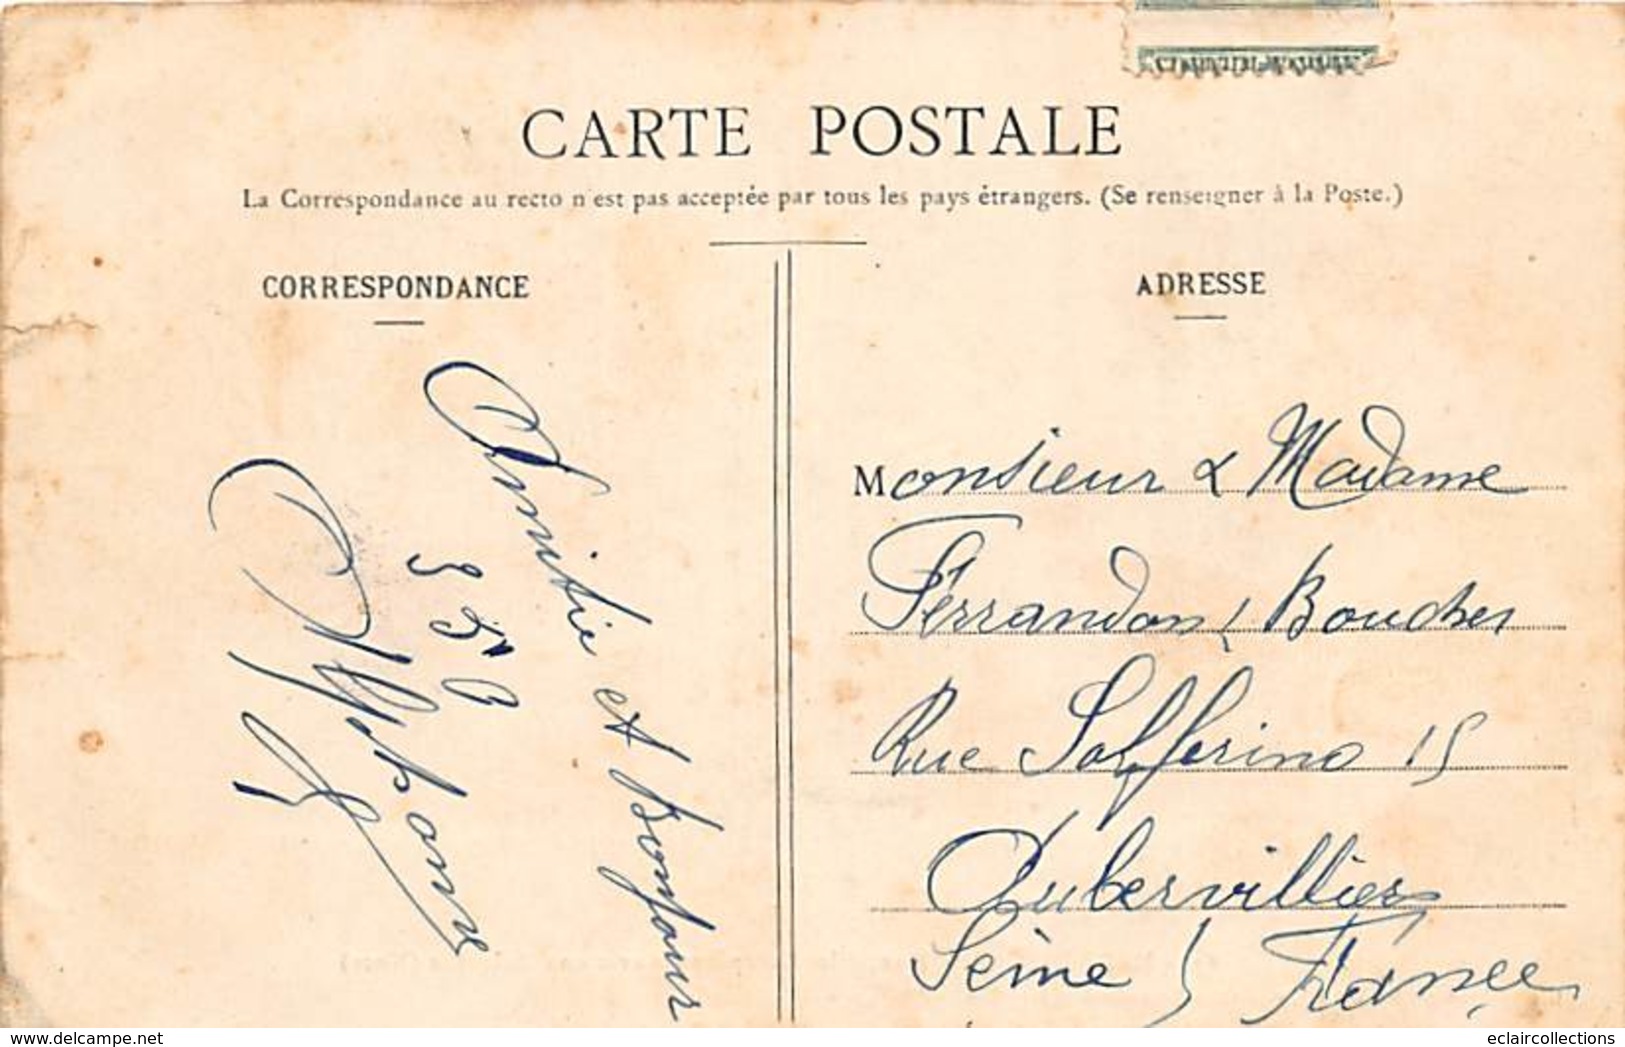 CARTE POSTALE
La Correspondance au recto n'est pas acceptée par tous les pays étrangers. (Se renseigner à la Poste.)
CORRESPONDANCE
Amitié et Bonjour
Alphonse
ADRESSE
Monsieur & Madame
Ferrandon, Boucher
Rue Solferino 15
Aubervilliers
Seine, France
delcampe.net
eclaircollections